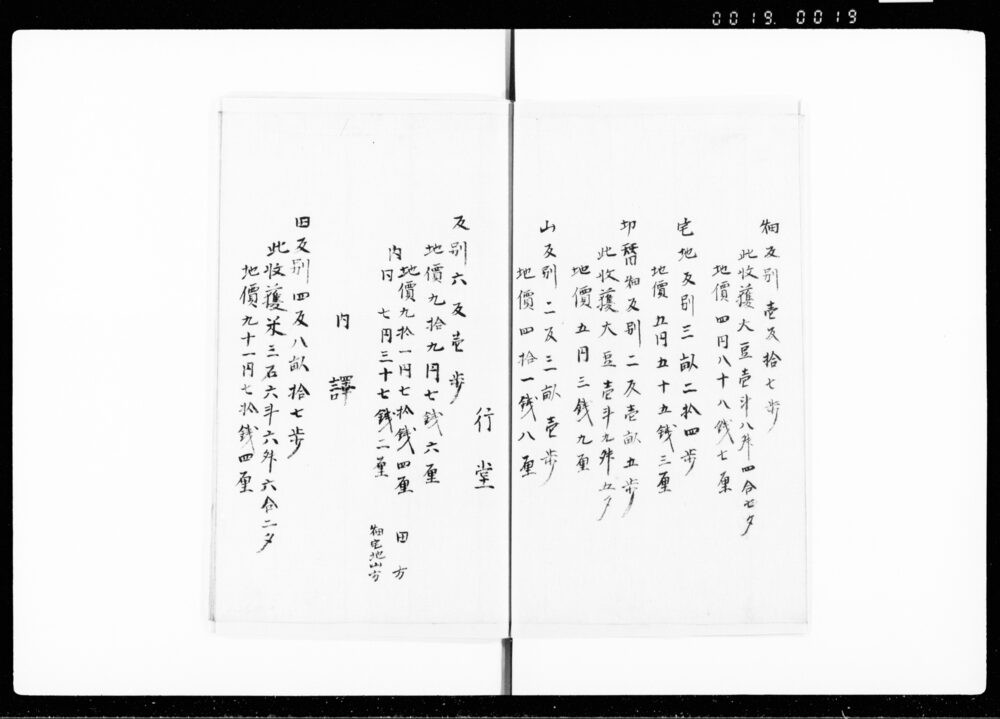 0019.0019
畑反別壱反拾七歩
此收獲大豆壱斗八舛四合七夕
地價四円八十八銭七厘
宅地反別三畝二拾四歩
地價五円五十五銭三厘
切替畑反別二反壱畝五歩
此收獲大豆壱斗九舛五夕
地價五円三銭九厘
山反別二反三畝壱歩
地價四拾一銭八厘
行堂
反別六反壱歩
地價九拾九円七銭六厘
内地價九拾一円七拾銭四厘 田方
内円七円三十七銭二厘 畑宅地山方
内譯
田反別四反八畝拾七歩
此收獲米三石六斗六舛六合二夕
地價九十一円七拾銭四厘